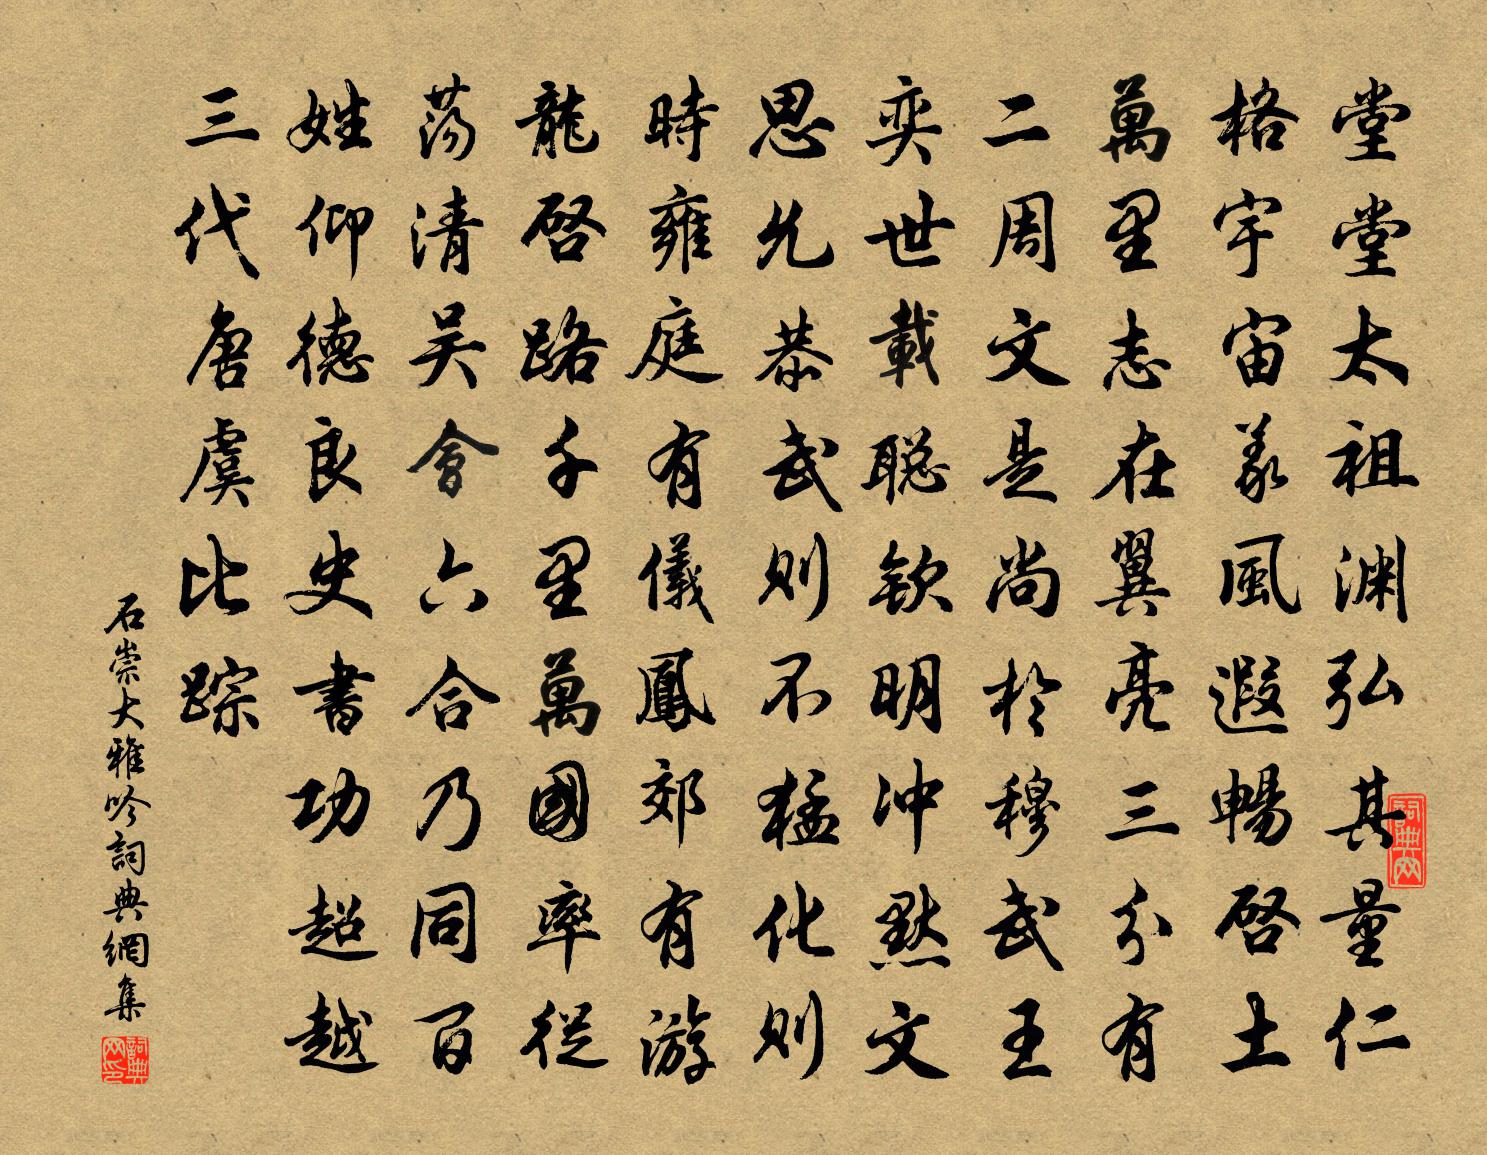 堂堂太祖渊弘其量仁
格宇宙義風遐暢啓土
萬里志在翼亮三分有
二周文是尚於穆武王
奕世載聪欽明冲黙文
思允恭武則不猛化則
時雍庭有儀鳳郊有游
龍啓路千里萬國率從
荡清吴會六合乃同百
姓仰德良史書功超越
三代唐虞比踪
石崇大雅吟詞典網集
詞典网
詞典网印